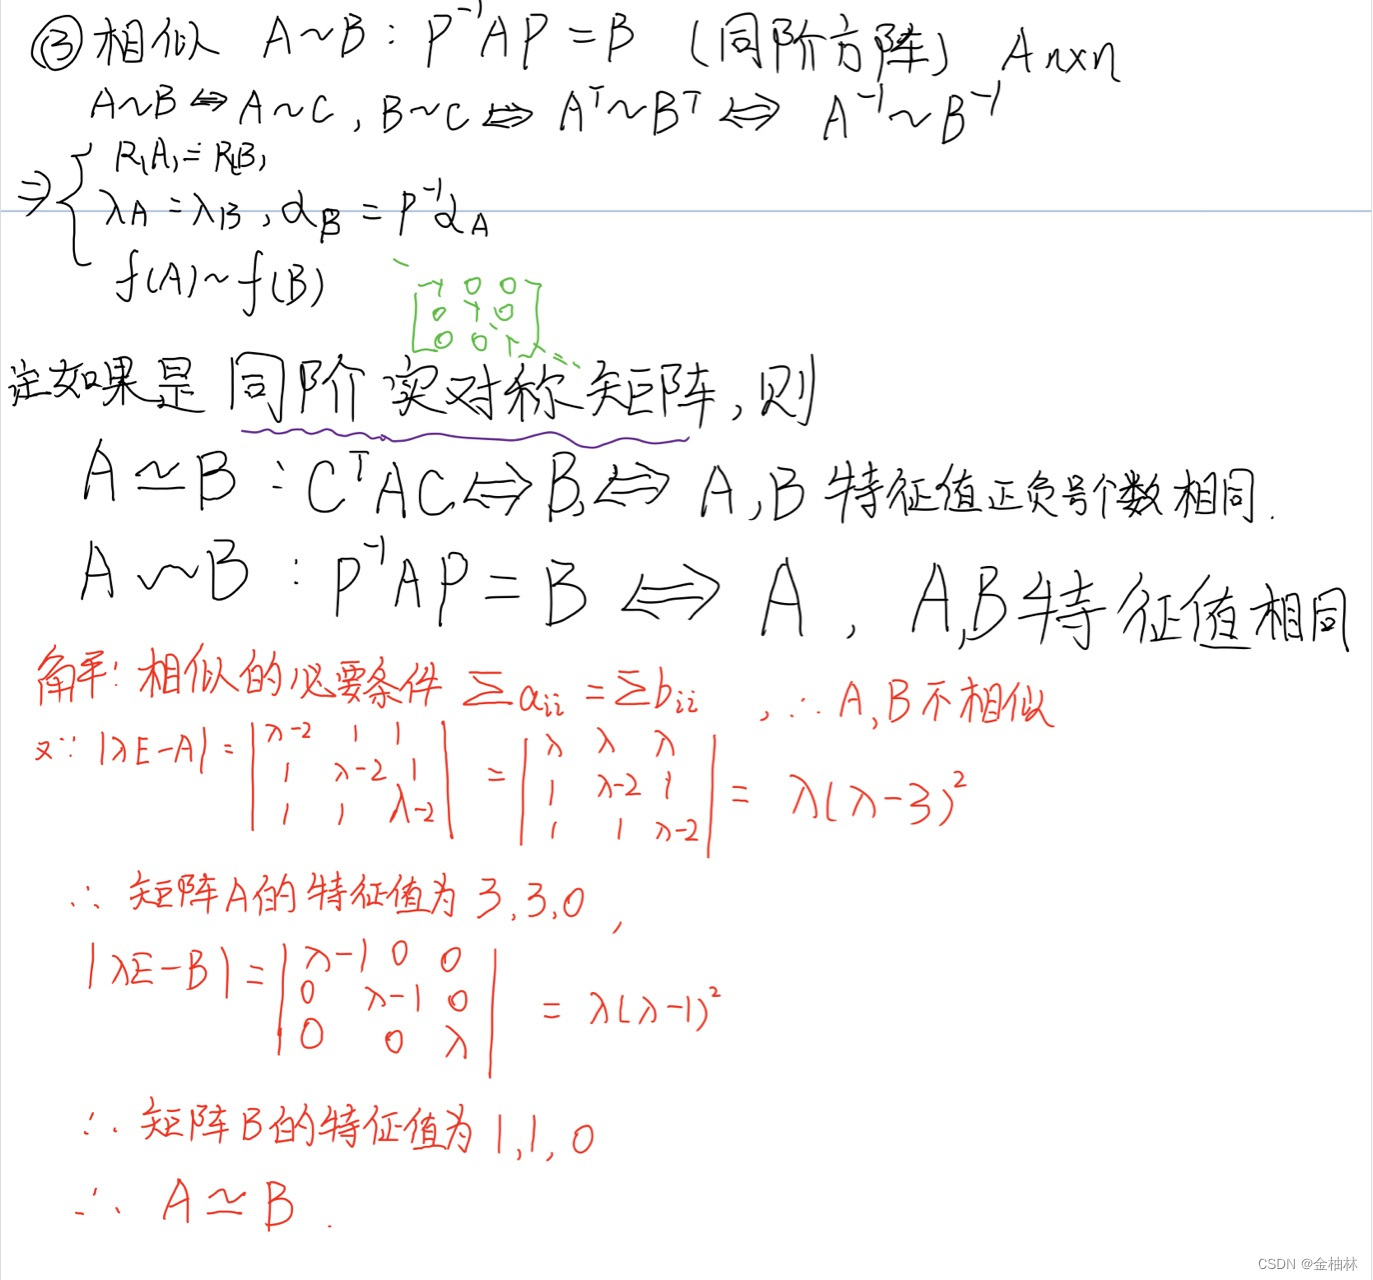 ③相似 A~B: P⁻¹AP=B (同阶方阵) Anxn
A~B⇔A~C, B~C⇔Aᵀ~Bᵀ⇔A⁻¹~B⁻¹
⇒{ R(A)=R(B)
λA=λB, αB=P⁻¹αA
f(A)~f(B)
0 0
0 0
0 0
注如果是同阶实对称矩阵,则
A≃B: CᵀAC⇔B,⇔A,B特征值正负号个数相同.
A~B: P⁻¹AP=B⇔A, A,B特征值相同
解:相似的必要条件 Σaii=Σbii ,∴A,B不相似
又∵ |λE-A|= |λ-2 1 1| = |λ λ λ| = λ(λ-3)²
|1 λ-2 1| |1 λ-2 1|
|1 1 λ-2| |1 1 λ-2|
∴矩阵A的特征值为3,3,0,
|λE-B|= |λ-1 0 0| = λ(λ-1)²
|0 λ-1 0|
|0 0 λ|
∴矩阵B的特征值为1,1,0
∴A≃B.
CSDN @金柚林